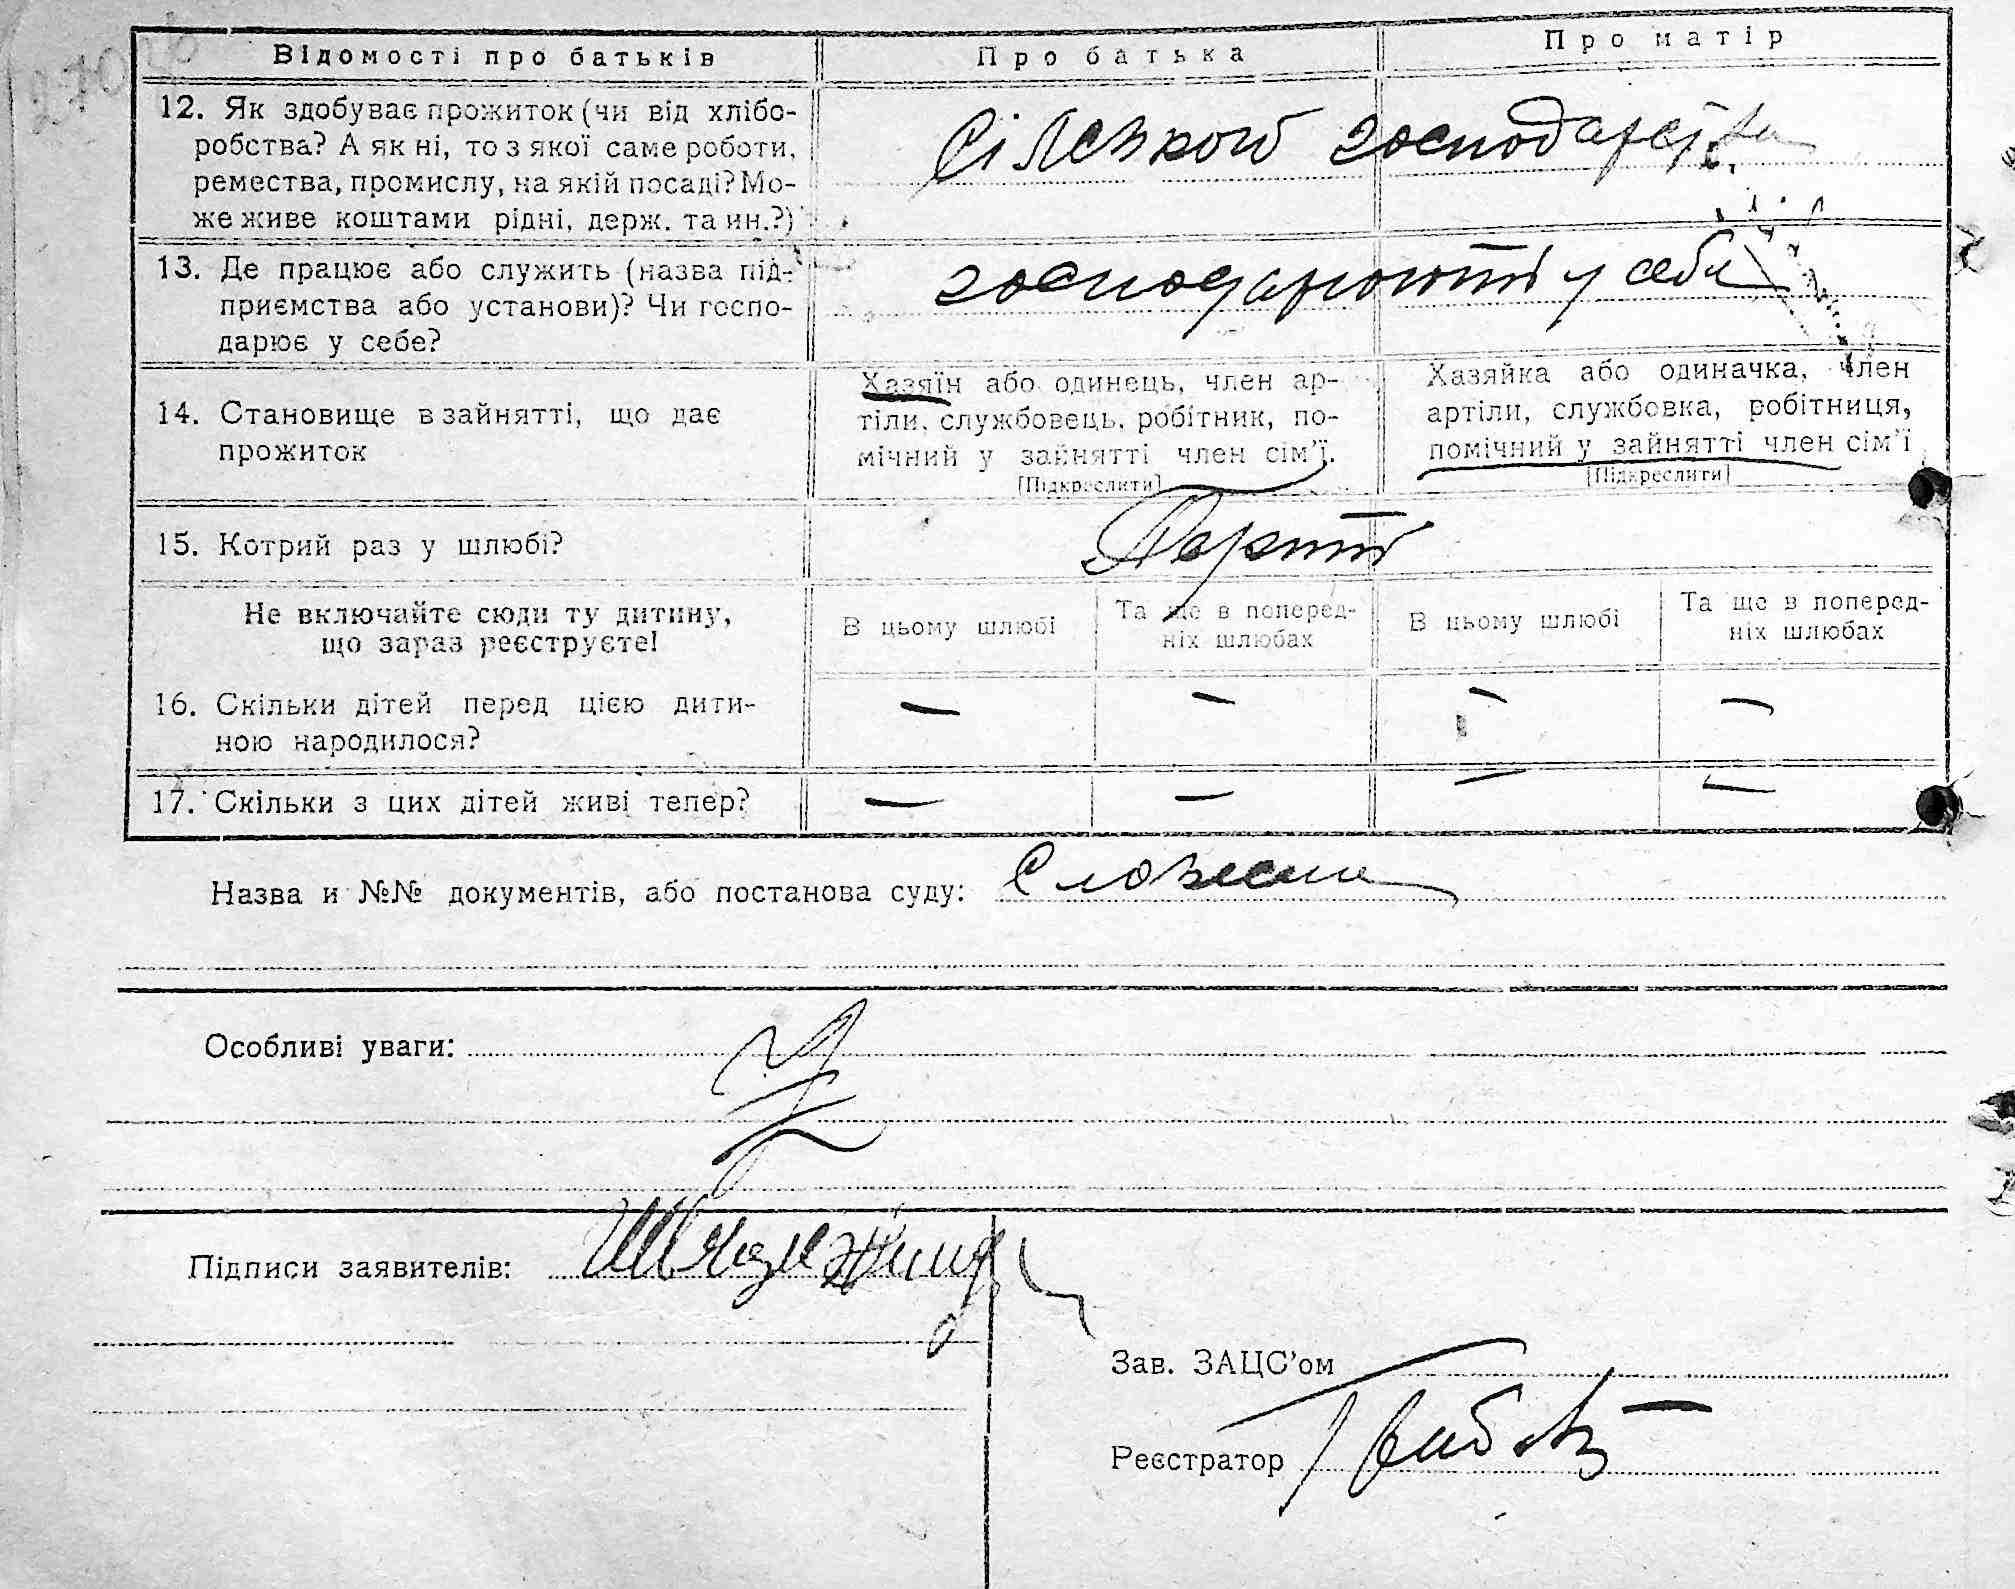 Відомості про батьків
Про батька
Про матір
12. Як здобуває прожиток (чи від хлібо-
робства? А як ні, то з якої саме роботи,
ремества, промислу, на якій посаді? Мо-
же живе коштами рідні, держ. та ин.?)
господарства
13. Де працює або служить (назва під-
приємства або установи)? Чи госпо-
дарює у себе?
господарюють у себе
14. Становище в зайнятті, що дає
прожиток
Хазяїн або одинець, член ар-
тіли, службовець, робітник, по-
мічний у зайнятті член сім'ї.
[Підкреслити]
Хазяйка або одиначка, член
артіли, службовка, робітниця,
помічний у зайнятті член сім'ї
[Підкреслити]
15. Котрий раз у шлюбі?
Не включайте сюди ту дитину,
що зараз реєструєте!
В цьому шлюбі
Та ще в поперед-
ніх шлюбах
В цьому шлюбі
Та ще в поперед-
ніх шлюбах
16. Скільки дітей перед цією дити-
ною народилося?
— — — —
17. Скільки з цих дітей живі тепер?
— — — —
Назва и №№ документів, або постанова суду: Словесно
Особливі уваги:
Підписи заявителів:
Зав. ЗАЦС'ом
Реєстратор